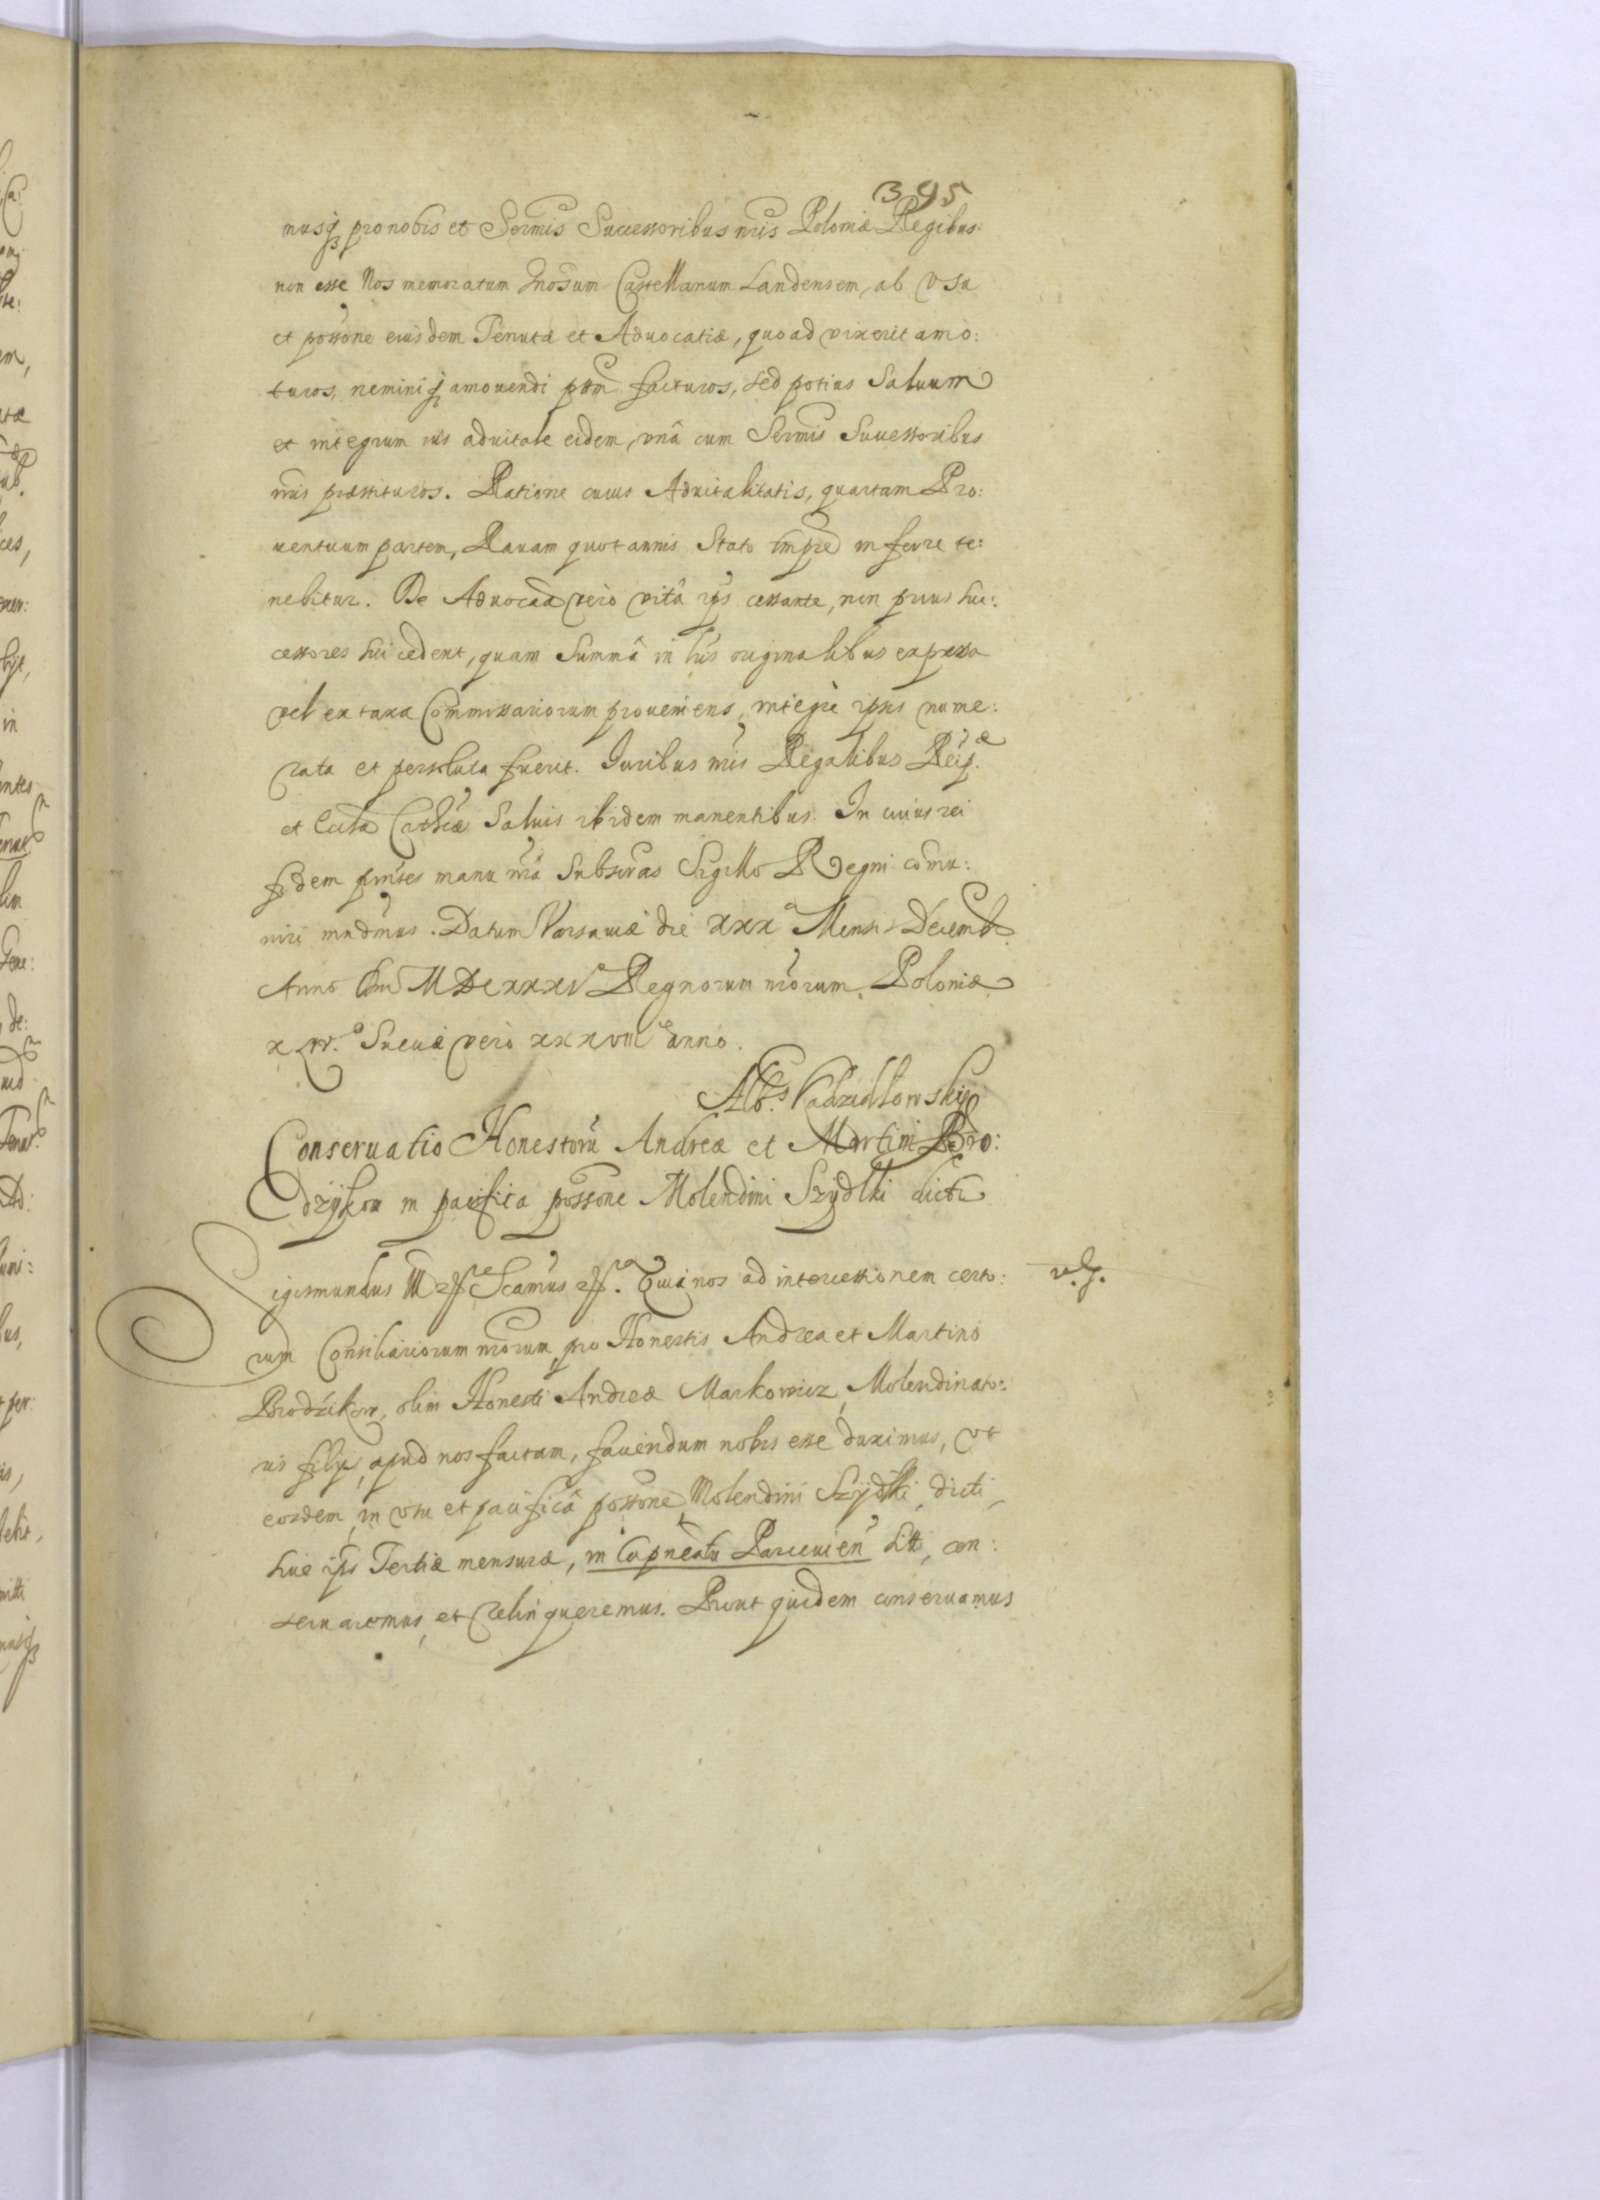 395
musq₃ pro nobis et Sermis Successoribus nris Poloniæ Regibus:
non esse Nos memoratum Gnosum Castellanum Landensem, ab vsu
et possone eiusdem Tenutæ et Aduocatiæ, quoad vixerit amo:
turos, nemini q₃ amouendi ptm facturos, sed potius Saluum
et integrum ius aduitale eidem, vnâ cum Sermis Successoribus
nris præstituros. Ratione cuius Aduitalitatis, quartam Pro:
uentuum partem, Rauam quotannis Stato tempre inferre te:
nebitur. De Aduocaa vero vitâ ipˢ cessante, non prius Suc:
cessores sui cedent, quam Summâ in lris originalibus expressa
vel ex taxa Commissariorum proueniens, integrè ipsis nume:
rata et persoluta fuerit. Iuribus nris Regalibus Reip.æ
et Eccliæ Cathcæ Saluis ibidem manentibus. In cuius rei
fidem pntes manu nrâ Subscras Sigillo Regni comu:
niri mndmus. Datum Varsauiæ die xxx Mensis Decemb
Anno Dni MDCxxxv Regnorum nrorum, Poloniæ
Sueciæ vero xxxviii anno.
Albˢ Kadzidłowski
Conseruatio Honestoru Andreæ et Martini Bro:
dzijkow in pacifica possone Molendini Szydlki dicti
igismundus III etc Scamus etc. Quia nos ad intercessionem certo:
v. g.
rum Consiliariorum nrorum, pro Honestis Andrea et Martino
Brodzikow, olim Honesti Andreæ Markowicz, Molendinato:
ris filijs, apud nos factam, fauendum nobis esse duximus, vt
eosdem, in vsu et pacificâ possone, Molendini Szydlki, dicti,
siue ipˢ Tertiæ mensuræ, in Capneatu Parceuien Sitt, con:
seruaremus, et relinqueremus. Prout quidem conseruamus